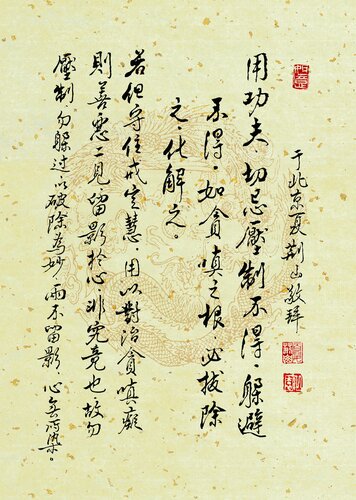 用功夫切忌壓制不得，躲避
不得。如貪嗔之根，必拔除
之，化解之。
若但守住戒定慧，用以對治貪嗔癡
則善惡二見留影於心非究竟也故勿
壓制勿躲過以破除為妙雨不留影心無所染。
于北京夏荆山敬拜